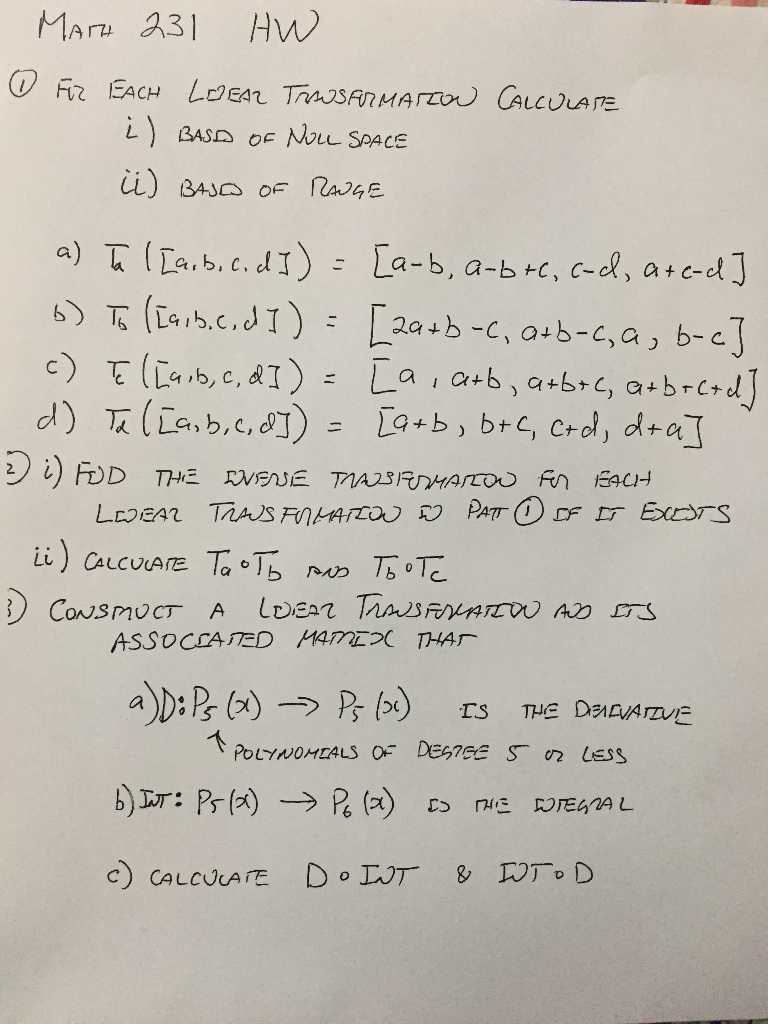 MATH 231 HW
① FOR EACH LINEAR TRANSFORMATION CALCULATE
i) BASIS OF NULL SPACE
ii) BASIS OF RANGE
a) Ta ([a,b,c,d]) = [a-b, a-b+c, c-d, a+c-d]
b) Tb ([a,b,c,d]) = [2a+b-c, a+b-c, a, b-c]
c) Tc ([a,b,c,d]) = [a, a+b, a+b+c, a+b+c+d]
d) Td ([a,b,c,d]) = [a+b, b+c, c+d, d+a]
② i) FIND THE INVERSE TRANSFORMATION FOR EACH
LINEAR TRANSFORMATION IN PART ① IF IT EXISTS
ii) CALCULATE Ta∘Tb AND Tb∘Tc
③ CONSTRUCT A LINEAR TRANSFORMATION AND ITS
ASSOCIATED MATRIX THAT
a) D: P5(x) → P5(x) IS THE DERIVATIVE
↑ POLYNOMIALS OF DEGREE 5 OR LESS
b) INT: P5(x) → P6(x) IS THE INTEGRAL
c) CALCULATE D∘INT & INT∘D